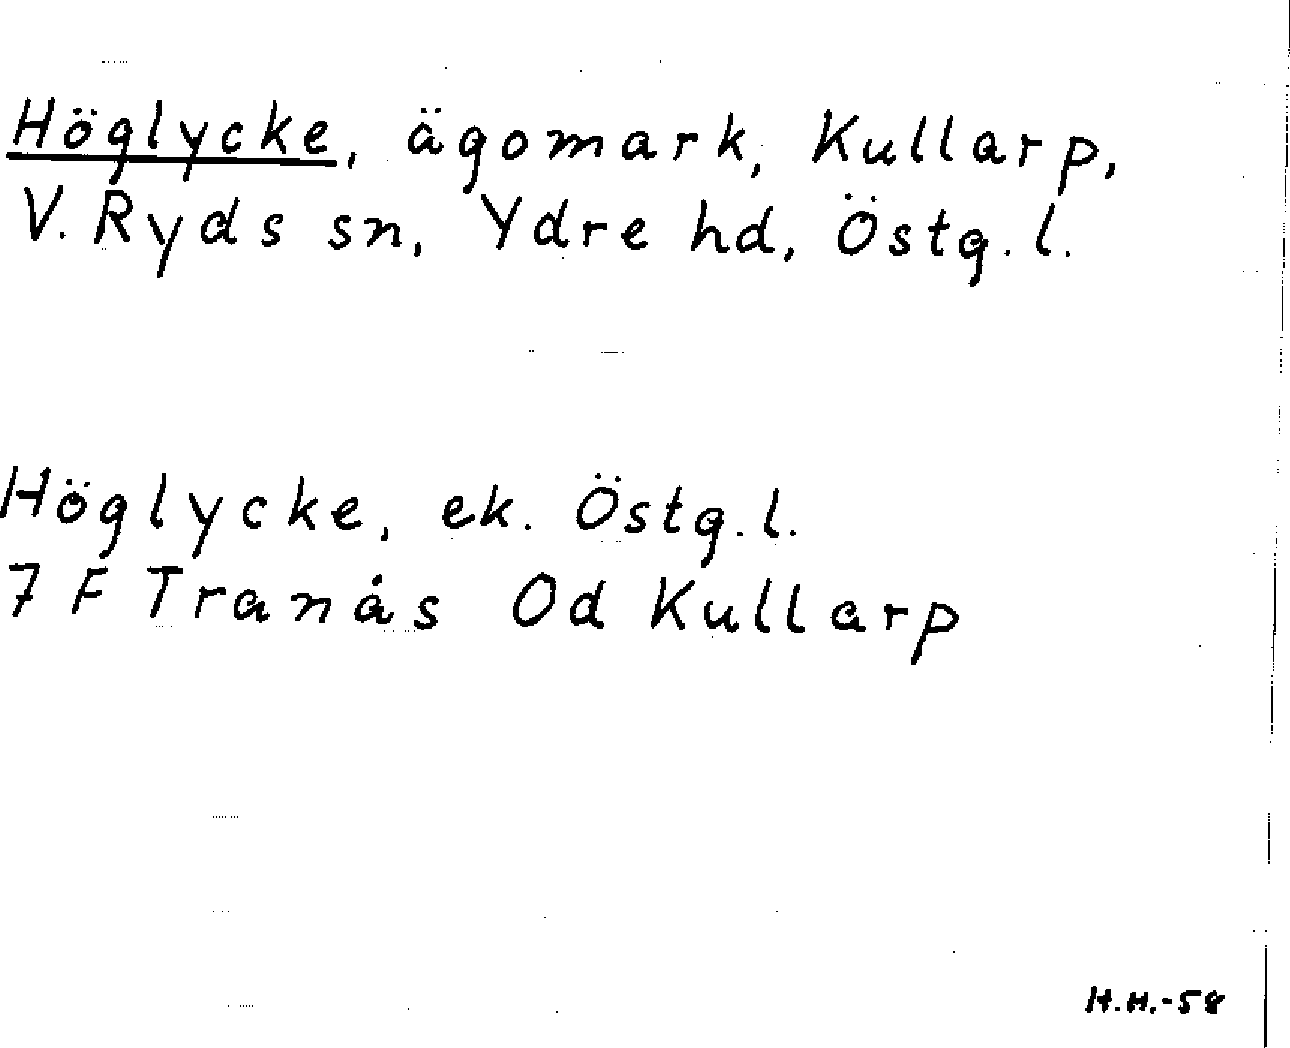 Höglycke, ägomark, Kullarp,
V. Ryds sn, Ydre hd, Östg.l.
Höglycke, ek. Östg.l.
7 F Tranås Od Kullarp
H.H.-58